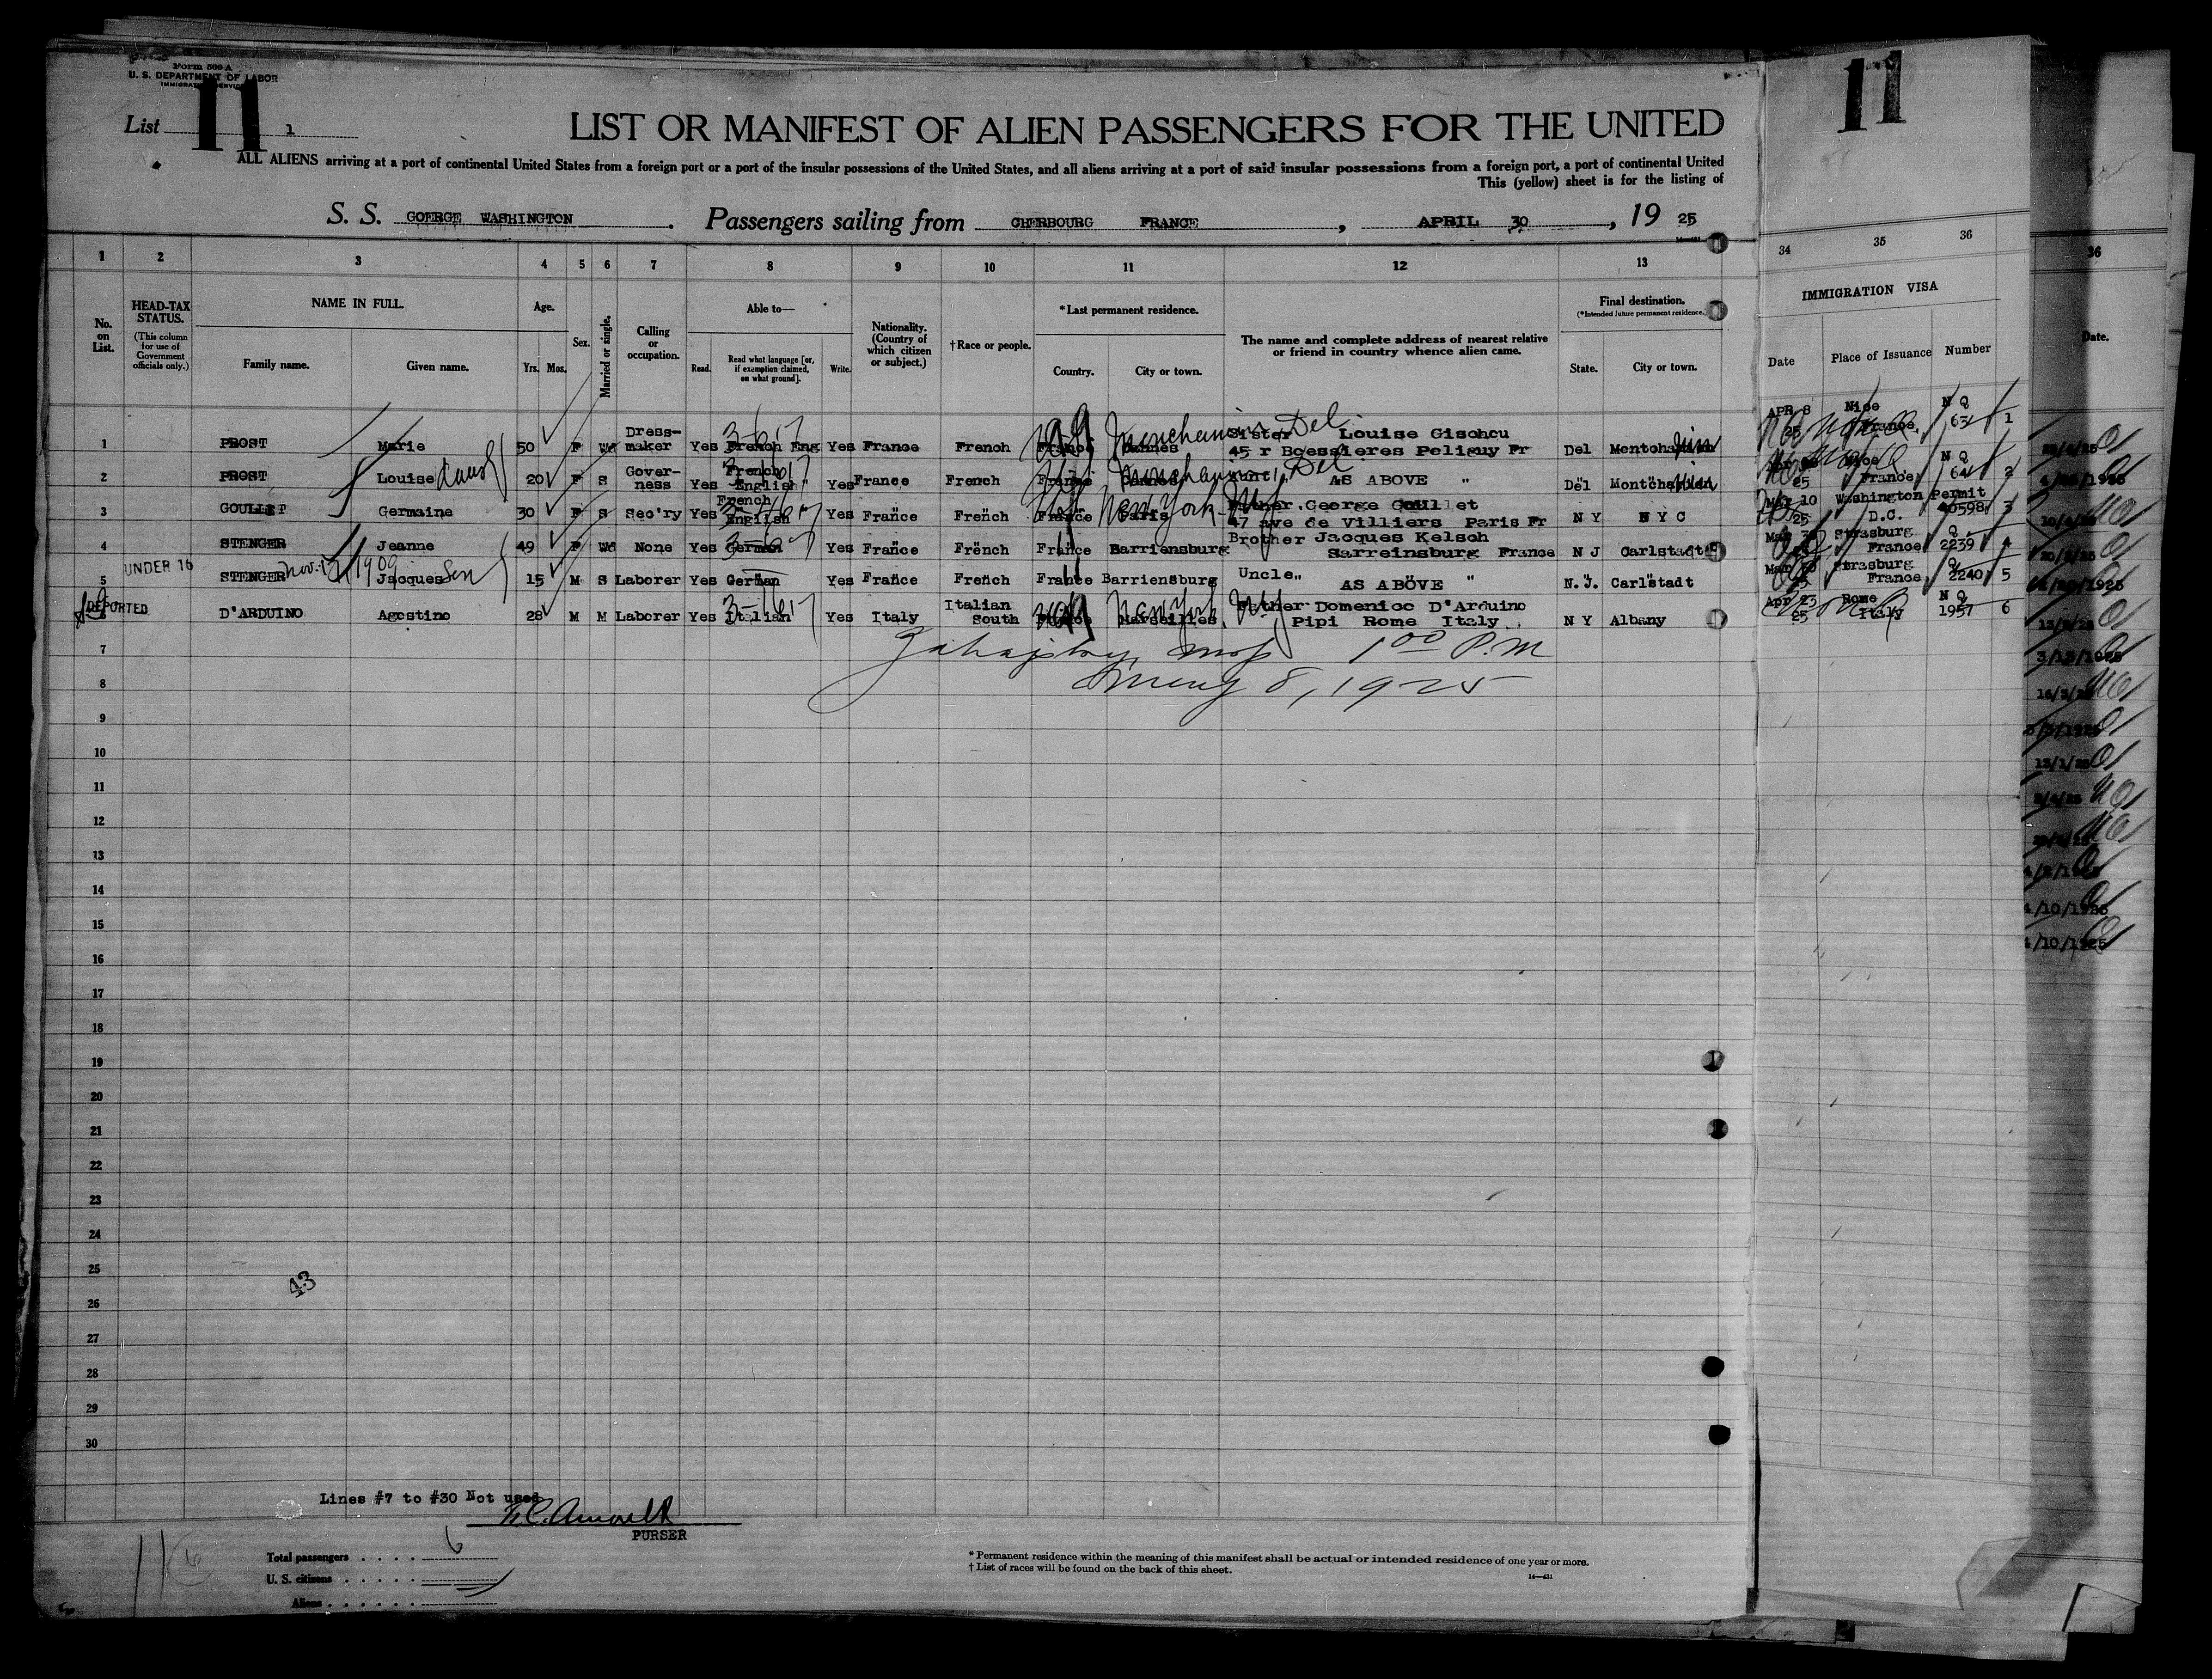 Form 500 A
U. S. DEPARTMENT OF LABOR
IMMIGRATION SERVICE
11
11
List 1
LIST OR MANIFEST OF ALIEN PASSENGERS FOR THE UNITED
ALL ALIENS arriving at a port of continental United States from a foreign port or a port of the insular possessions of the United States, and all aliens arriving at a port of said insular possessions from a foreign port, a port of continental United
This (yellow) sheet is for the listing of
S. S. GOERGE WASHINGTON . Passengers sailing from CHERBOURG FRANCE , APRIL 30 , 19 25
1 2 3 4 5 6 7 8 9 10 11 12 13 34 35 36 36
No. on List.
HEAD-TAX STATUS.
(This column for use of Government officials only.)
NAME IN FULL.
Family name. Given name.
Age.
Yrs. Mos.
Sex.
Married or single.
Calling or occupation.
Able to—
Read. Read what language [or, if exemption claimed, on what ground]. Write.
Nationality. (Country of which citizen or subject.)
†Race or people.
*Last permanent residence.
Country. City or town.
The name and complete address of nearest relative or friend in country whence alien came.
Final destination.
(*Intended future permanent residence.)
State. City or town.
IMMIGRATION VISA
Date Place of Issuance Number
Date.
1 PROST Marie 50 F Wd Dress-maker Yes French Eng Yes France French France Cannes Sister Louise Gischcu 45 r Boessieres Peliguy Fr Del APR 8 25 Nice France N Q 63 1
2 PROST Louise 20 F S Gover-ness Yes French English Yes France French France Aunt " AS ABOVE " Del 25 France N Q 64 2
3 GOULLET Germaine 30 F S Sec'ry Yes French English Yes France French France Paris New York Father George Goullet 47 ave de Villiers Paris Fr N Y N Y C Mar 10 25 Washington D.C. Permit 40598 3
4 STENGER Jeanne 49 F Wd None Yes German Yes France French France Barriensburg Brother Jacques Kelsch Sarreinsburg France N J Carlstadt Strasburg France Q 2239 4
UNDER 16 Nov. 1909
5 STENGER Jacques Son 15 M S Laborer Yes German Yes France French France Barriensburg Uncle " AS ABOVE " N.J. Carlstadt Strasburg France Q 2240 5
DEPORTED
6 D'ARDUINO Agostino 28 M M Laborer Yes Italian Yes Italy Italian South Marseilles New York Father Domenico D'Arduino Pipi Rome Italy N Y Albany Apr 25 Rome Italy N Q 1957 6
7 1 00 P.M
8 8, 1925
9
10
11
12
13
14
15
16
17
18
19
20
21
22
23
24
25
43
26
27
28
29
30
Lines #7 to #30 Not used
PURSER
Total passengers . . . . 6
U. S. citizens . . . . .
Aliens . . . . . .
* Permanent residence within the meaning of this manifest shall be actual or intended residence of one year or more.
† List of races will be found on the back of this sheet.